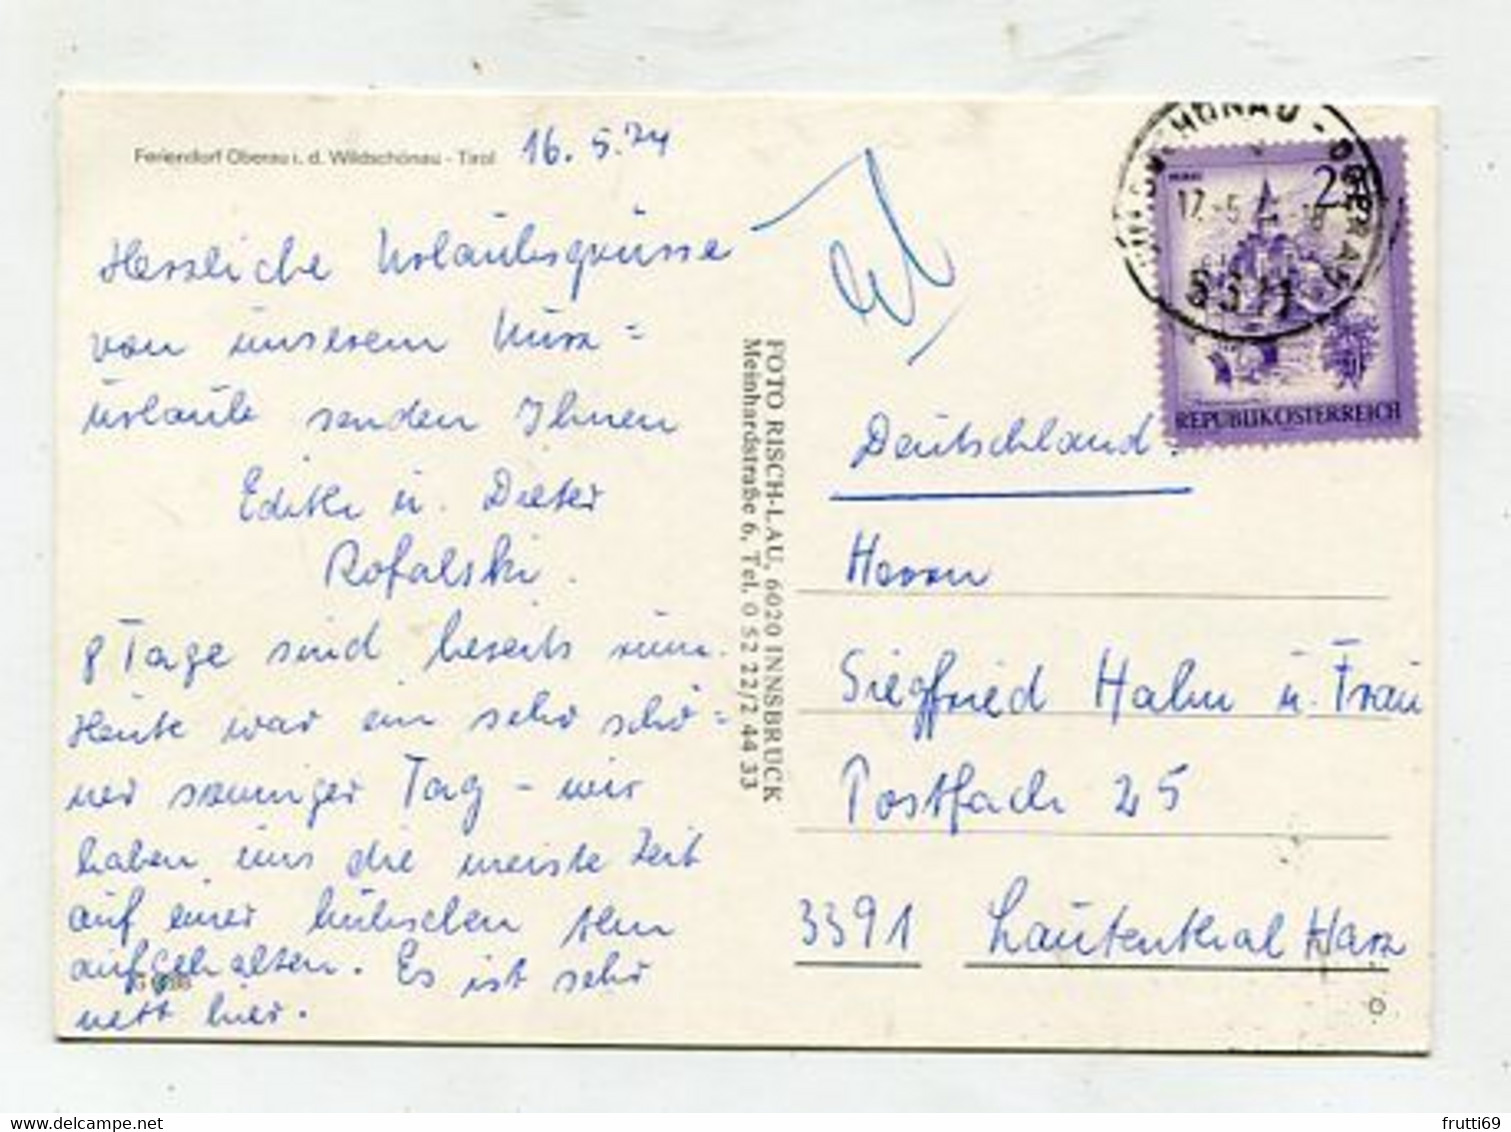 Feriendorf Oberau i. d. Wildschönau - Tirol
16. 5. 74
Herzliche Urlaubsgrüsse
von unserem Kurz=
urlaub senden Ihnen
Edith u. Dieter
Rofalski.
8 Tage sind bereits rum.
Heute war ein sehr schö=
ner sonniger Tag - wir
haben uns die meiste Zeit
auf einer hübschen Alm
aufgehalten. Es ist sehr
nett hier.
FOTO RISCH-LAU, 6020 INNSBRUCK
Meinhardstraße 6, Tel. 0 52 22/2 44 33
WILDSCHÖNAU - OBERAU
17.-5.
6311
2
REPUBLIK ÖSTERREICH
Deutschland.
Herrn
Siegfried Hahn u. Frau
Postfach 25
3391 Lautenthal Harz
frutti69